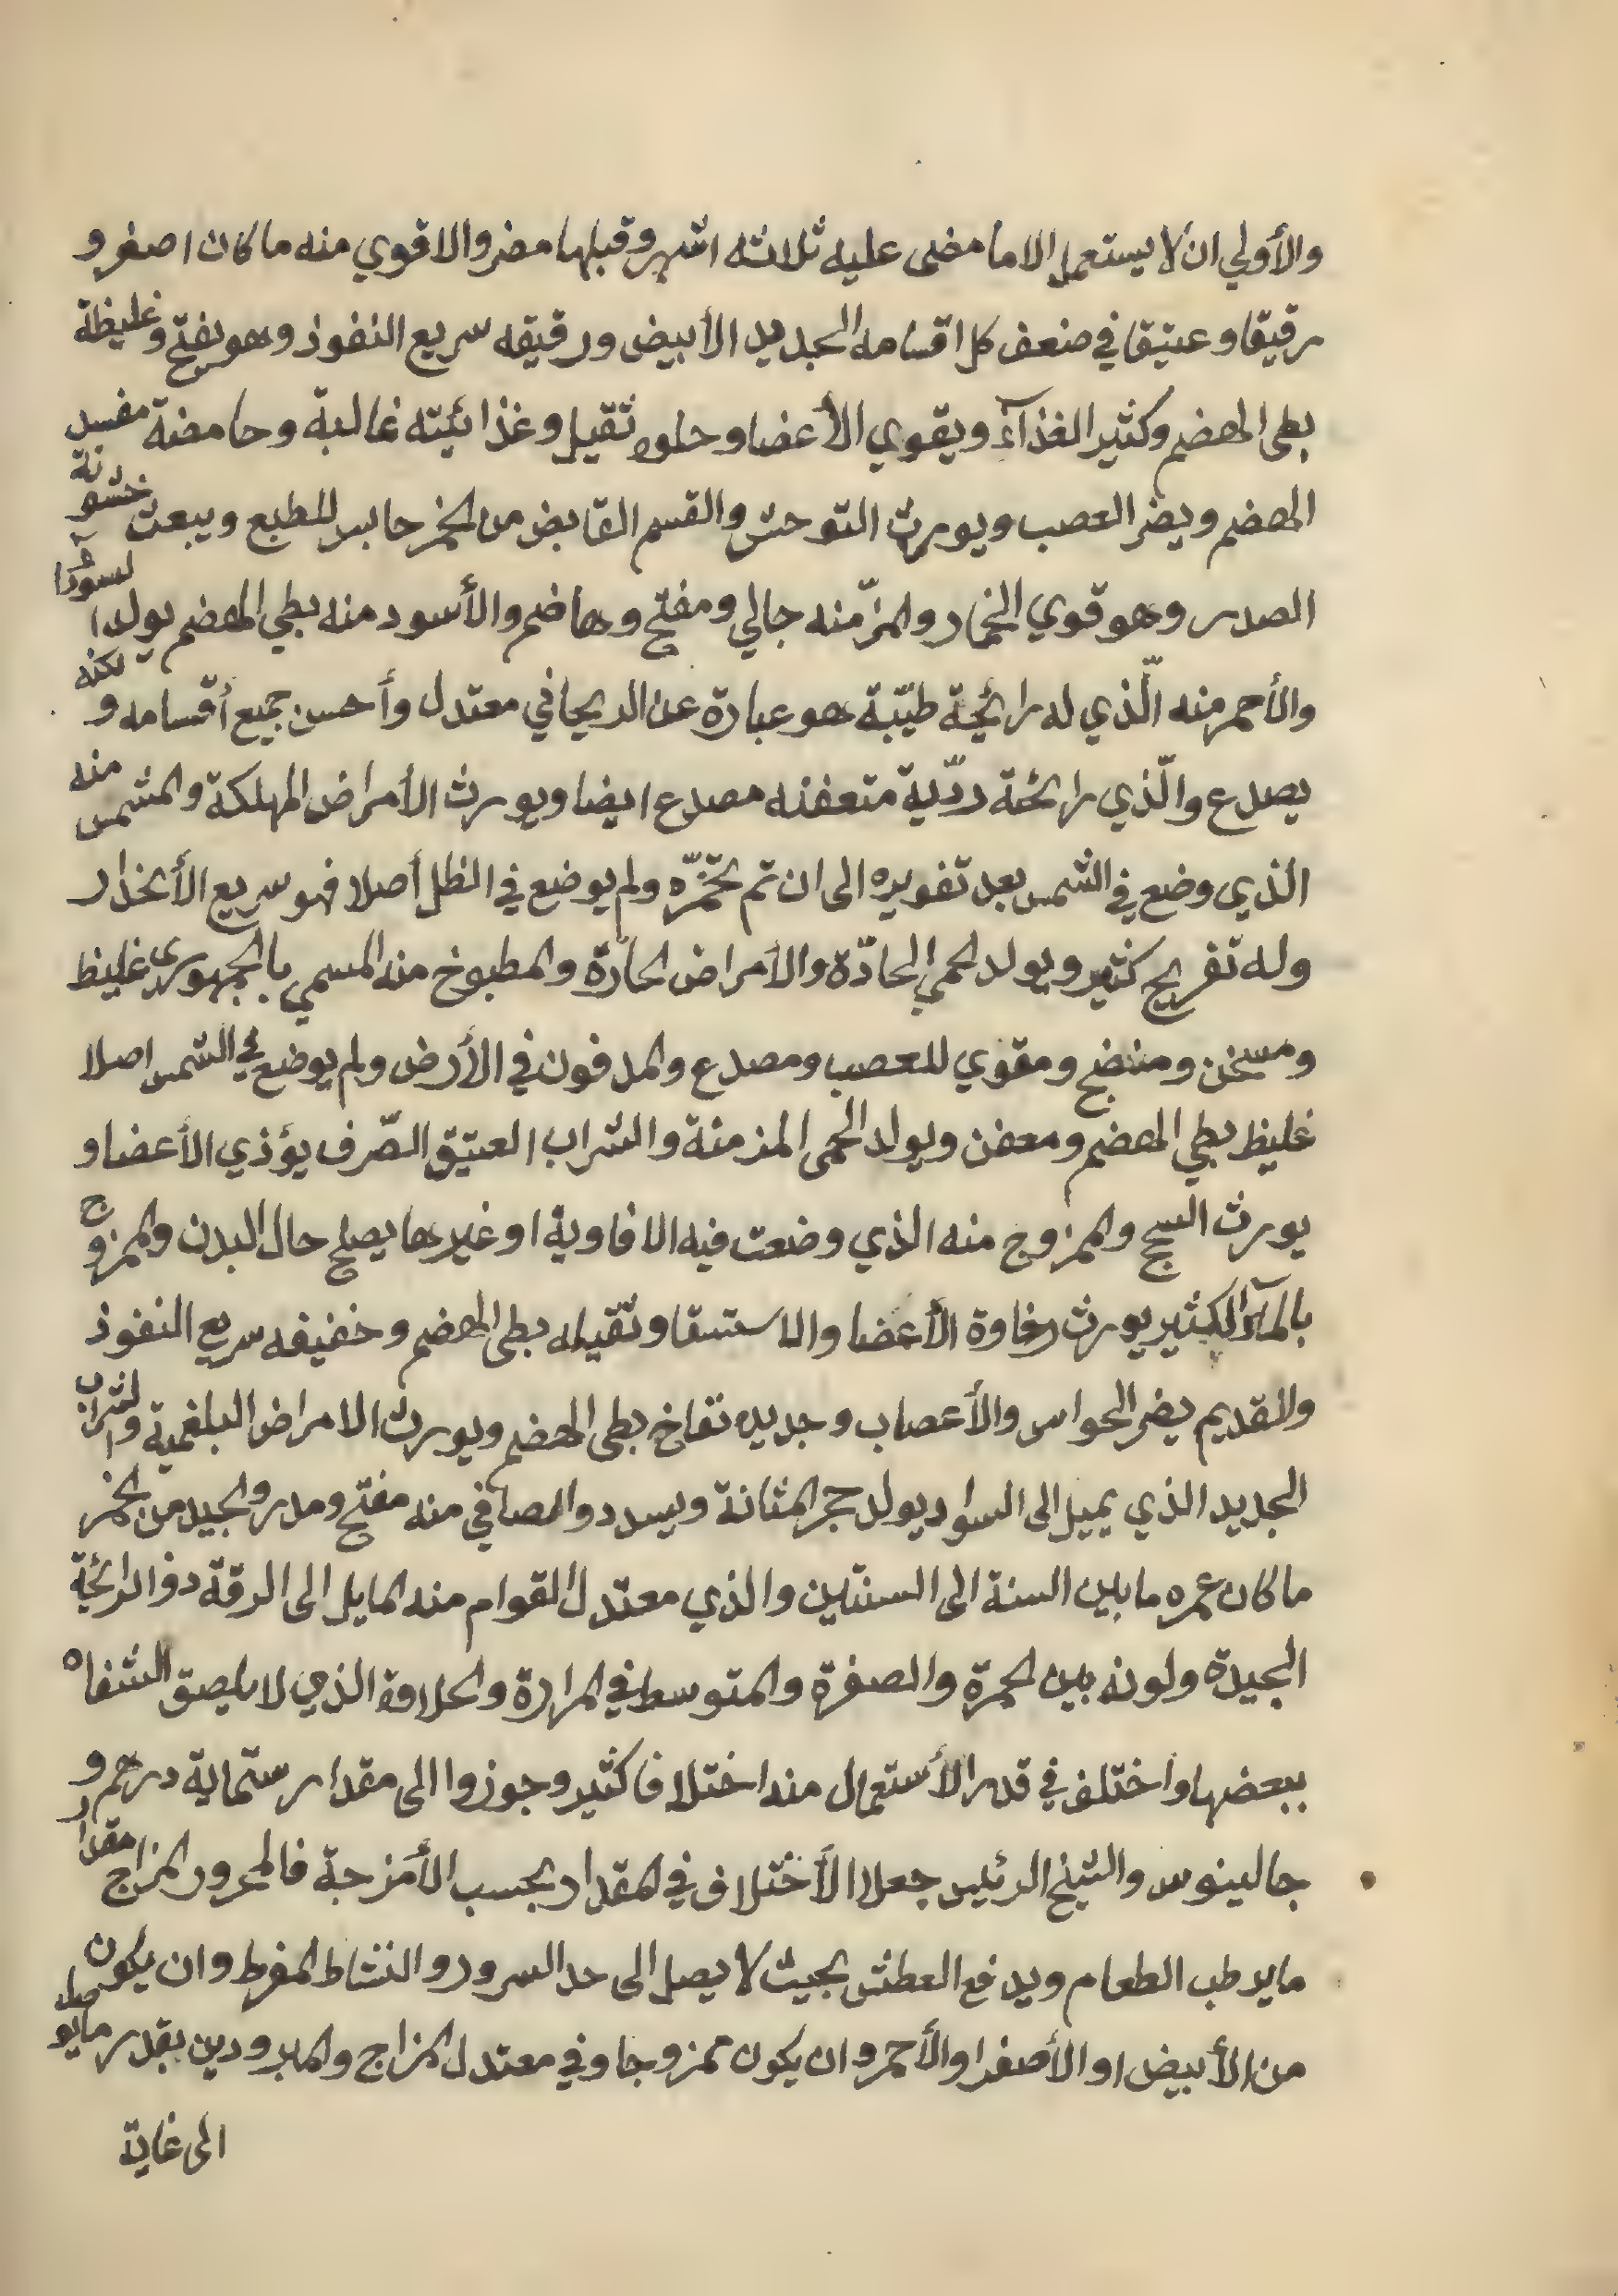 والأولي ان لا يستعمل الا ما مضى عليه ثلاثه اشهر وقبلها مضر والاقوي منه ما كان اصفر و
رقيقا وعتيقا في ضعف كل اقسامه الجديد الأبيض ورقيقه سريع النفوذ وهو يفتح وغليظة
بطى الهضم وكثير الغذآء ويقوي الأعضا وحلوه ثقيل وغذائيته غالبة وحامضة مفسد
الهضم ويضر العصب ويورث التوحش والقسم القابض من الخمر حابس للطبع ويبعث خشونة
الصدر وهو قوي الخمار والمزّ منه جالي ومفتح وهاضم والأسود منه بطي الهضم يولد السودآ
والأحمر منه الّذي له رائحة طيّبة هو عبارة عن الريحاني معتدل وأحسن جميع أقسامه ولكنه
يصدع والّذي رائحة رديّة متعفنه مصدع ايضا ويورث الأمراض المهلكة والمشمس منه
الذي وضع في الشمس بعد تفويره الى ان تم تخمّره ولم يوضع في الظل أصلا فهو سريع الأنحذار
وله تفريح كثير ويولد الحمي الحادّة والأمراض الحارّة والمطبوخ منه المسمي بالجمهوري غليظ
ومسخن ومنضج ومقوي للعصب ومصدع والمدفون في الأرض ولم يوضع في الشمس اصلا
غليظ بطي الهضم ومعفن ويولد الحمى المزمنة والشراب العتيق الصّرف يؤذي الأعضا و
يورث السحج والممزوج منه الذي وضعت فيه الافاوية او غيرها يصلح حال البدن والممزوج
بالمآء الكثير يورث رخاوة الأعضا والاستسقا وثقيله بطى الهضم وخفيفه سريع النفوذ
والقديم يضر الحواس والأعصاب وجديده نفاخ بطى الهضم ويورث الامراض البلغمية والشراب
الجديد الذي يميل الى السواد يولد حجر المثانة ويسدد والصافي منه مفتح ومدر والجيد من الخمر
ما كان عمره ما بين السنة الى السنتين والذي معتدل القوام منه المايل الى الرقة ذو الرائحة
الجيدة ولونه بين الحمرة والصفرة والمتوسط في المرارة والحلاوة الذي لا يلصق الشفاه
ببعضها واختلف في قدر الأستعمال منه اختلافا كثير وجوزوا الى مقدار ستماية درهم و
جالينوس والشيخ الرئيس جعلا الأختلاف في المقدار بحسب الأمزجة فالمحرور المزاج مقدار
ما يرطب الطعام ويدفع العطش بحيث لا يصل الى حد السرور والنشاط المفرط وان يكون
من الأبيض او الأصفر او الأحمر وان يكون ممزوجا وفي معتدل المزاج والمبرودين بقدر ما يوصل
الى غاية